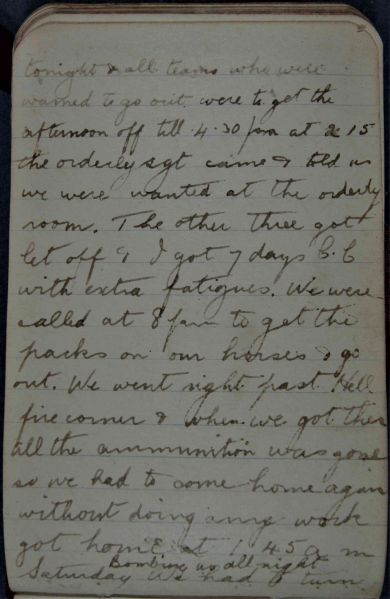 tonight & all teams who were
warned to go out. were to get the
afternoon off till 4.30 pm at 2 15
the orderly sgt came & told us
we were wanted at the orderly
room. The other three got
let off & I got 7 days C.C
with extra fatigues. We were
called at 8 pm to get the
packs on our horses & go
out. We went right past Hell
fire corner & when we got there
all the ammunition was gone
so we had to come home again
without doing any work
got home at 1.45 a m
Bombing us all night
Saturday We had to turn